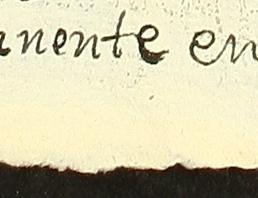 anente en